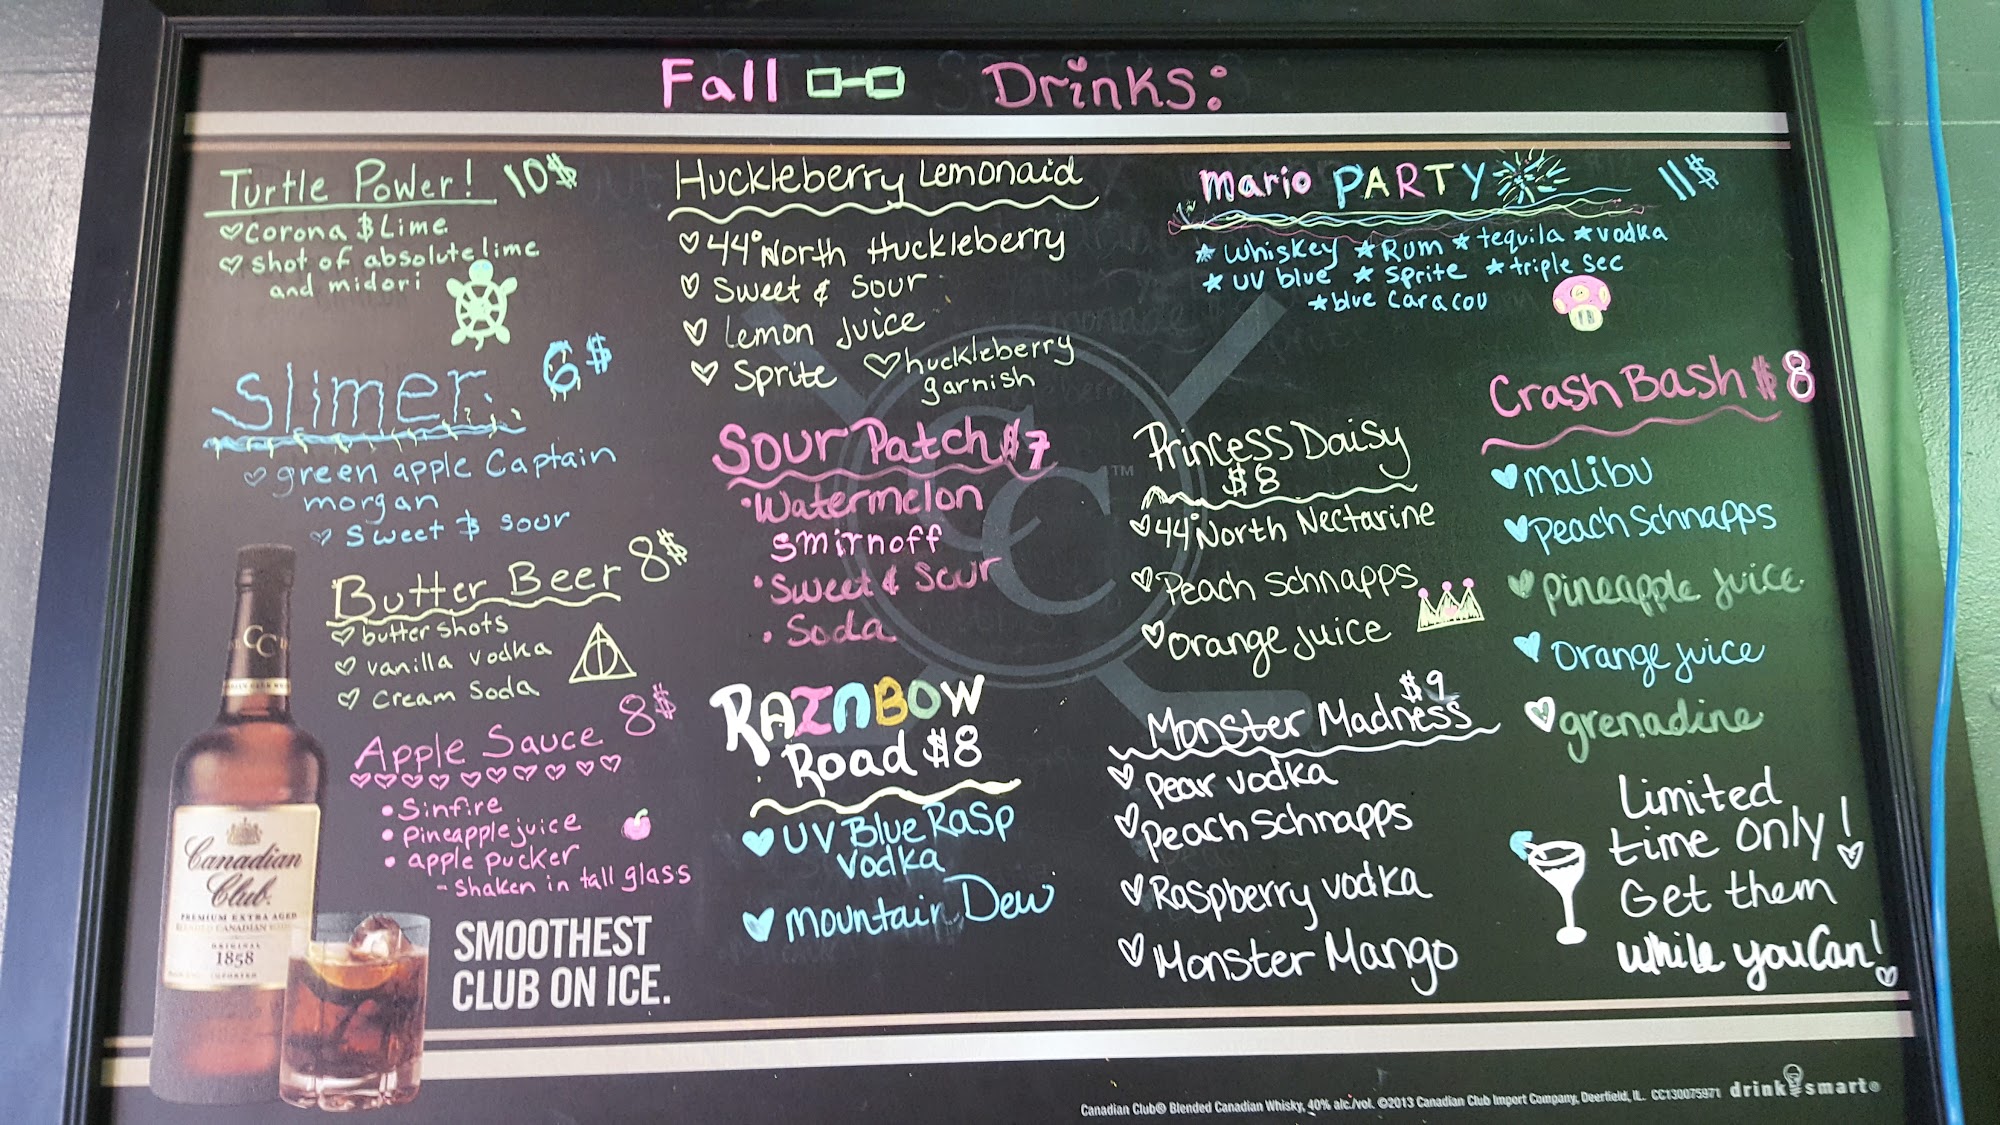 Fall Drinks:
Turtle Power! 10$
Corona $ Lime
shot of absolute lime
and midori
Slimer 6$
green apple Captain
morgan
sweet $ sour
Butter Beer 8$
buttershots
vanilla vodka
cream soda
Apple Sauce 8$
• Sinfire
• pineapple juice
• apple pucker
- shaken in tall glass
Huckleberry Lemonaid
44° North Huckleberry
Sweet & Sour
lemon juice
Sprite
huckleberry
garnish
Sour Patch $7
• Watermelon
smirnoff
• Sweet & Sour
• Soda
RAINBOW
Road $8
UV Blue Rasp
Vodka
Mountain Dew
Mario PARTY 11$
★ whiskey ★ Rum ★ tequila ★ vodka
★ UV blue ★ Sprite ★ triple sec
★ blue Caracou
Princess Daisy
$8
44° North Nectarine
Peach Schnapps
orange juice
Monster Madness $9
pear vodka
peach schnapps
Raspberry vodka
Monster Mango
Crash Bash $8
Malibu
Peach Schnapps
pineapple juice
Orange juice
grenadine
Limited
time only!
Get them
while you can!
CC
CC ™
Canadian
Club.
PREMIUM EXTRA AGED
BLENDED CANADIAN
ORIGINAL
1858
IMPORTED
SMOOTHEST
CLUB ON ICE.
Canadian Club® Blended Canadian Whisky, 40% alc./vol. ©2013 Canadian Club Import Company, Deerfield, IL. CC130075971 drink smart®